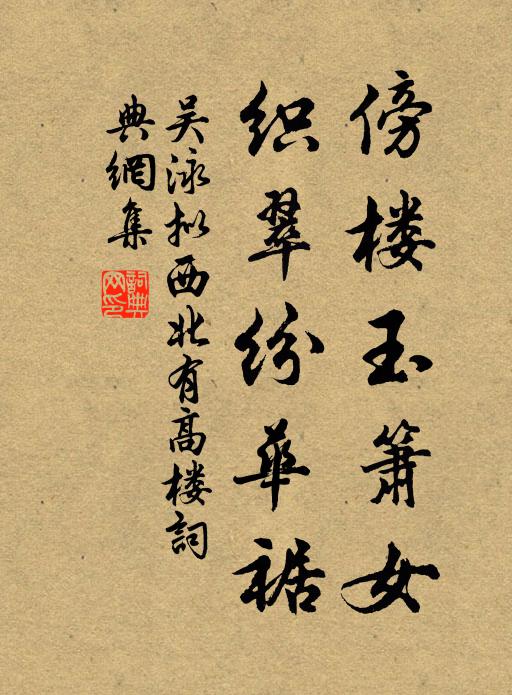 傍楼玉箫女
织翠纷华裾
吴泳拟西北有高楼詞
典網集
詞典網印